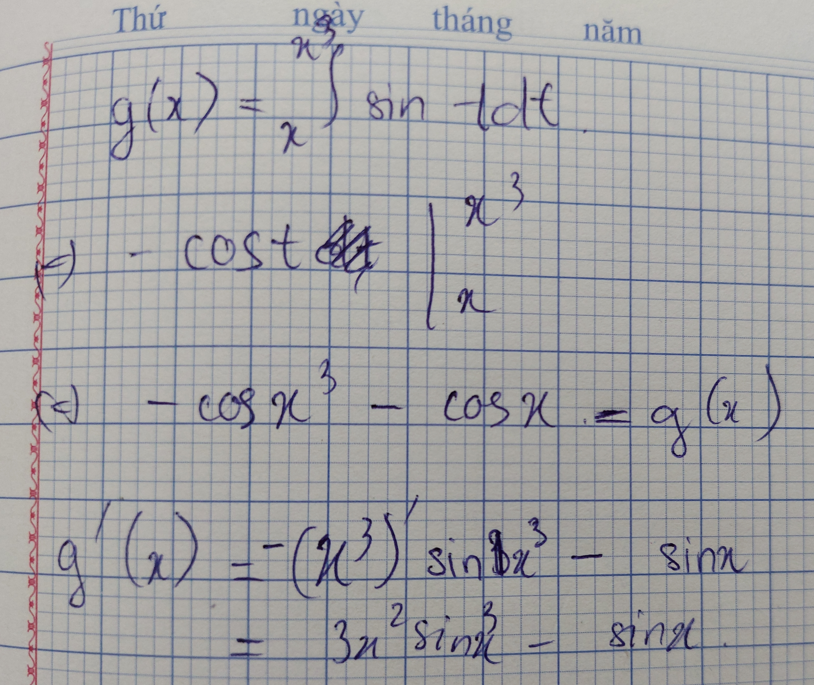 Thứ ngày tháng năm
g(x) = ∫ₓ^x³ sin t dt.
(=) - cos t |ₓ^x³
(=) - cos x³ - cos x = g(x)
g'(x) = -(x³)' sin x³ - sin x
= 3x² sin x³ - sin x.